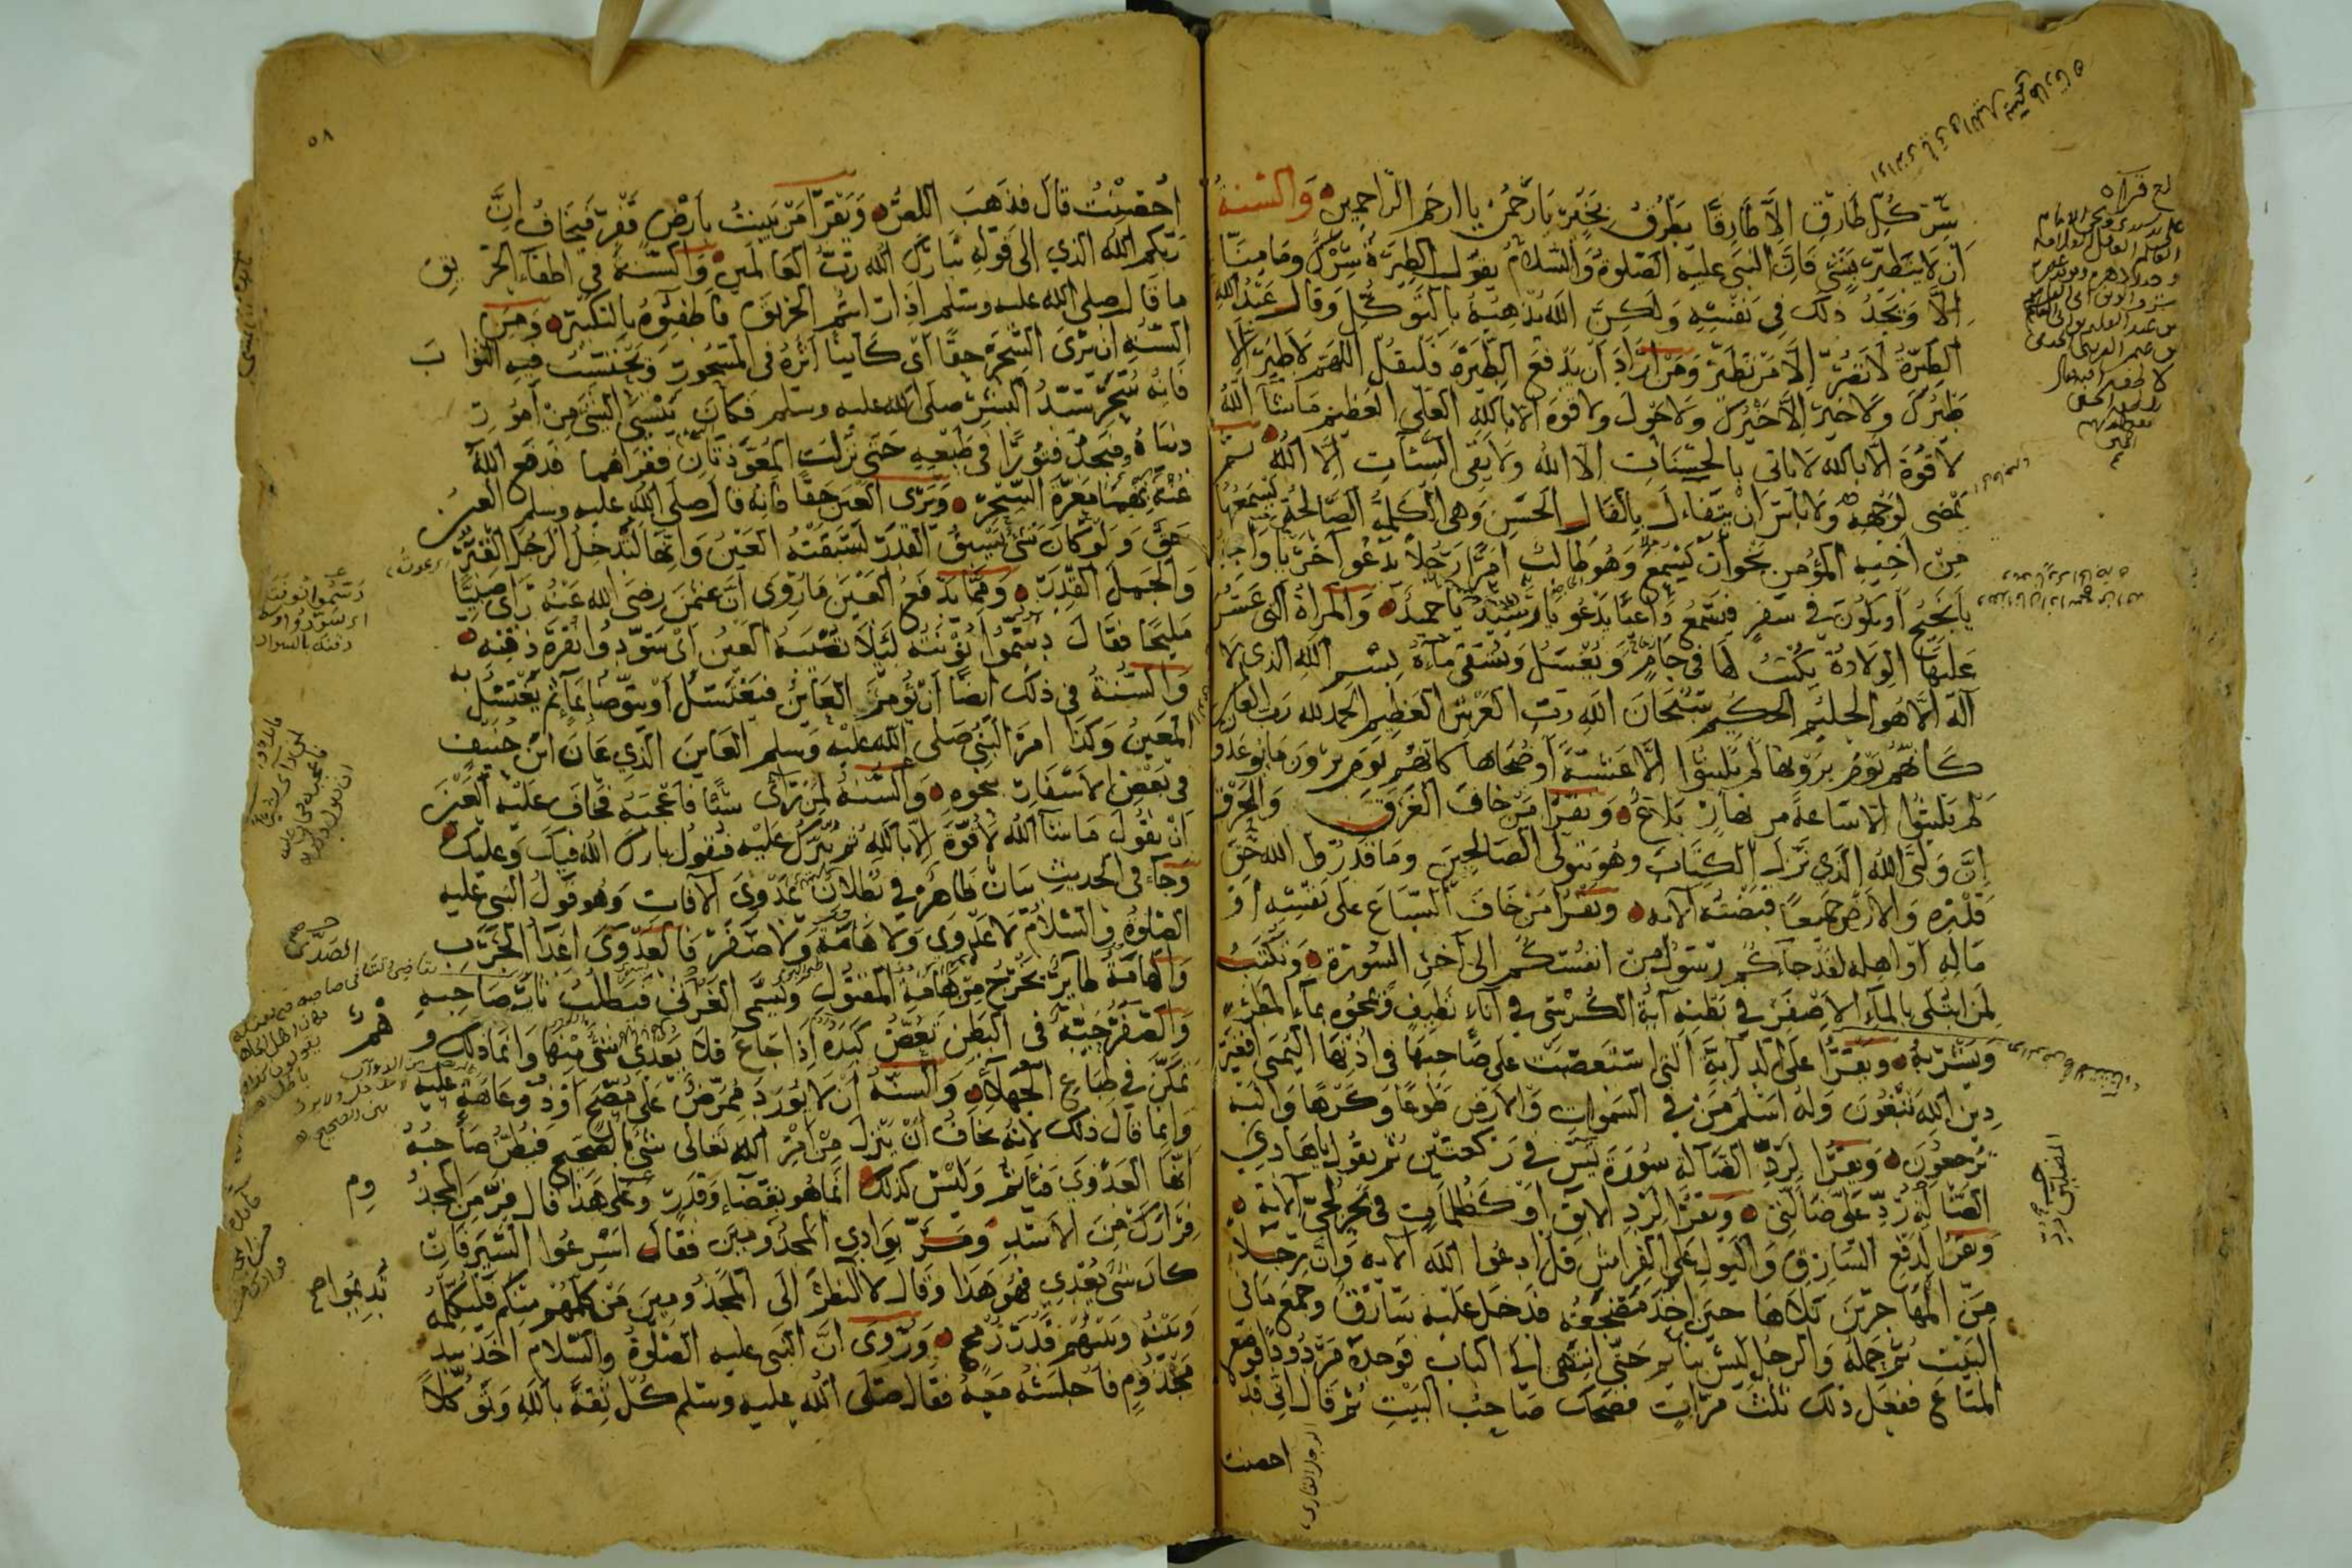 شر كل طارق الا طارقا يطرق بخير يا رحمن يا ارحم الراحمين والسنة
ان لا يتطير بشئ فان النبي عليه الصلوة والسلام يقول الطيرة شرك وما منا
الا ويجد ذلك في نفسه ولكن الله يذهبه بالتوكل وقال عبد الله
الطيرة لا تضر الا من تطير ومن اراد ان يدفع الطيرة فليقل اللهم لا طير الا
طيرك ولا خير الا خيرك ولا حول ولا قوة الا بالله العلي العظيم ما شآء الله
لا قوة الا بالله لا ياتى بالحسنات الا الله ولا يقى السيئات الا الله ثم
يمضى لوجهه ولا باس ان يتفاءل بالفال الحسن وهي الكلمة الصالحة يسمعها
من اخيه المؤمن نحو ان يسمع وهو طالب امرا رجلا يدعو آخر يا واجد
يا نجيح او يكون في سفر فيسمع داعيا يدعو يا رشيد يا حميد والمراة التى عسر
عليها الولادة يكتب لها في جام ويغسل ويسقى ماءه بسم الله الذي لا
اله الا هو الحليم الحكيم سبحان الله رب العرش العظيم الحمد لله رب العالمين
كانهم يوم يرونها لم يلبثوا الا عشية او ضحاها كانهم يوم يرون ما يوعدون
لم يلبثوا الا ساعة من نهار بلاغ ويقرا من خاف الغرق والحرق
ان وليي الله الذي نزل الكتاب وهو يتولى الصالحين وما قدروا الله حق
قدره والارض جميعا قبضته الآية ويقرا من خاف السباع على نفسه او
ماله او اهله لقد جاءكم رسول من انفسكم الى آخر السورة ويكتب
لمن ابتلى بالماء الاصفر في بطنه آية الكرسي في اناء نظيف ويمحوه بماء المطر
ويشربه ويقرا على الدابة التى استصعبت على صاحبها في اذنها اليمنى افغير
دين الله يبغون وله اسلم من في السموات والارض طوعا وكرها واليه
ترجعون ويقرا لرد الضالة سورة يس في ركعتين ثم يقول يا هادي
الضالة رد على ضالتى ويقرا لرد الابق او كظلمات في بحر لجي الآية
ويقرا لدفع السارق والبول على الفراش قل ادعوا الله الآية وان رجلا
من المهاجرين تلاها حين اخذ مضجعه فدخل عليه سارق وجمع ما في
البيت ثم حمله والرجل ليس بنائم حتى انتهى الى الباب فوجده مردودا فوضع
المتاع ففعل ذلك ثلث مرات فضحك صاحب البيت ثم قال انى قد
احصنت
٥٨
احصنت قال فذهب اللص ويقرا من يبيت بارض قفر فيخاف ان
ربكم الله الذي الى قوله تبارك الله رب العالمين والسنة في اطفاء الحريق
ما قال صلى الله عليه وسلم اذا رايتم الحريق فاطفئوه بالتكبير ومن
السنة ان يرى السحر حقا اى كائنا اثره في المسحور ويحتسب فيه الثواب
فانه سحر سيد البشر صلى الله عليه وسلم فكان ينسى الشئ من امور
دنياه ويجد فتورا في طبعه حتى نزلت المعوذتان فقراهما فدفع الله
عنه بهما معرة السحر ويرى العين حقا فانه قال صلى الله عليه وسلم العين
حق ولو كان شئ يسبق القدر لسبقته العين وانها لتدخل الرجل القبر
والجمل القدر ومما يدفع العين ما روى ان عثمن رضى الله عنه راى صبيا
مليحا فقال دسموا نونته لئلا تصيبه العين اى سودوا نقرة ذقنه
والسنة في ذلك ايضا ان يؤمر العاين فيغتسل او يتوضا بماء ثم يغتسل به
المعين وكذا امر النبي صلى الله عليه وسلم العاين الذي عان ابن حنيف
في بعض الاسفار بنحوه والسنة لمن راى شيئا فاعجبه فخاف عليه العين
ان يقول ما شاء الله لا قوة الا بالله ثم يبرك عليه فيقول بارك الله فيك وعليك
وجاء في الحديث بيان ظاهر في بطلان عدوى الآفات وهو قول النبي عليه
الصلوة والسلام لا عدوى ولا هامة ولا صفر فالعدوى اعداء الجرب
والهامة طائر يخرج من هامة المقتول ويسمى الفرنى فيطلب ثار صاحبه
والصفر حية في البطن تعض كبده اذا جاع فلا يعدى شئ منها وانما ذلك وهم
تمكن في طباع الجهلاء والسنة ان لا يورد ممرض على مصح او ذو عاهة عليه
وانما قال ذلك لانه يخاف ان ينزل من امر الله تعالى شئ بالصحيح فيظن صاحبه
انها العدوى فياثم وليس كذلك انما هو بقضاء وقدر وعلى هذا قال فر من المجذوم
فرارك من الاسد ومر بوادي المجذومين فقال اسرعوا السير فان
كان شئ يعدي فهو هذا وقال لا تديموا النظر الى المجذومين من كلمهم منكم فليكلمه
وبينه وبينهم قدر رمح وروى ان النبي عليه الصلوة والسلام اخذ بيد
مجذوم فاجلسه معه فقال صلى الله عليه وسلم كل ثقة بالله وتوكلا